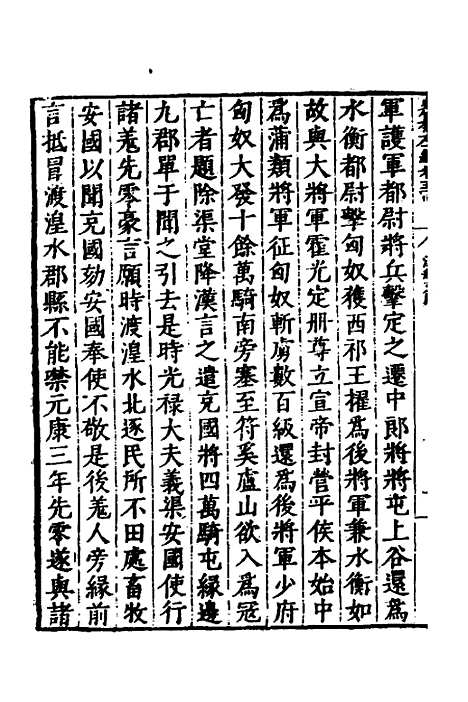 軍護軍都尉將兵擊定之遷中郎將將屯上谷還爲
水衡都尉擊匈奴獲西祁王擢爲後將軍兼水衡如
故與大將軍霍光定册尊立宣帝封營平侯本始中
爲蒲類將軍征匈奴斬虜數百級還爲後將軍少府
匈奴大發十餘萬騎南旁塞至符奚廬山欲入爲冠
亡者題除渠堂降漢言之遣充國將四萬騎屯縁邊
九郡單于聞之引去是時光禄大夫義渠安國使行
諸羗先零豪言願時渡湟水北逐民所不田處畜牧
安國以聞充國劾安國奉使不敬是後羗人旁縁前
言抵冒渡湟水郡縣不能禁元康三年先零遂與諸